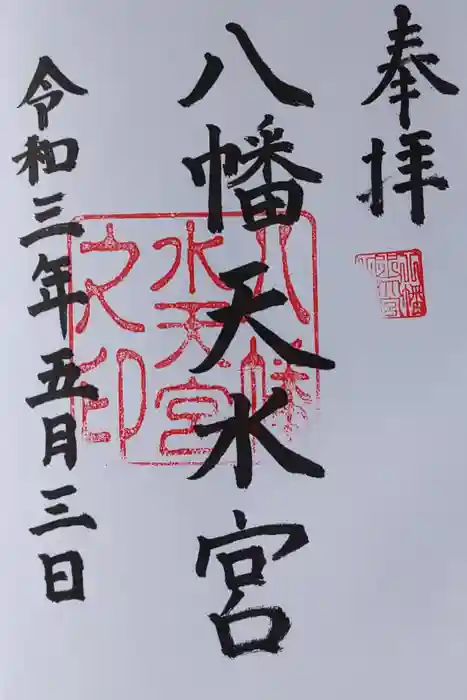 奉拝
八幡天水宮
令和三年五月三日
八幡
水天宮
之印